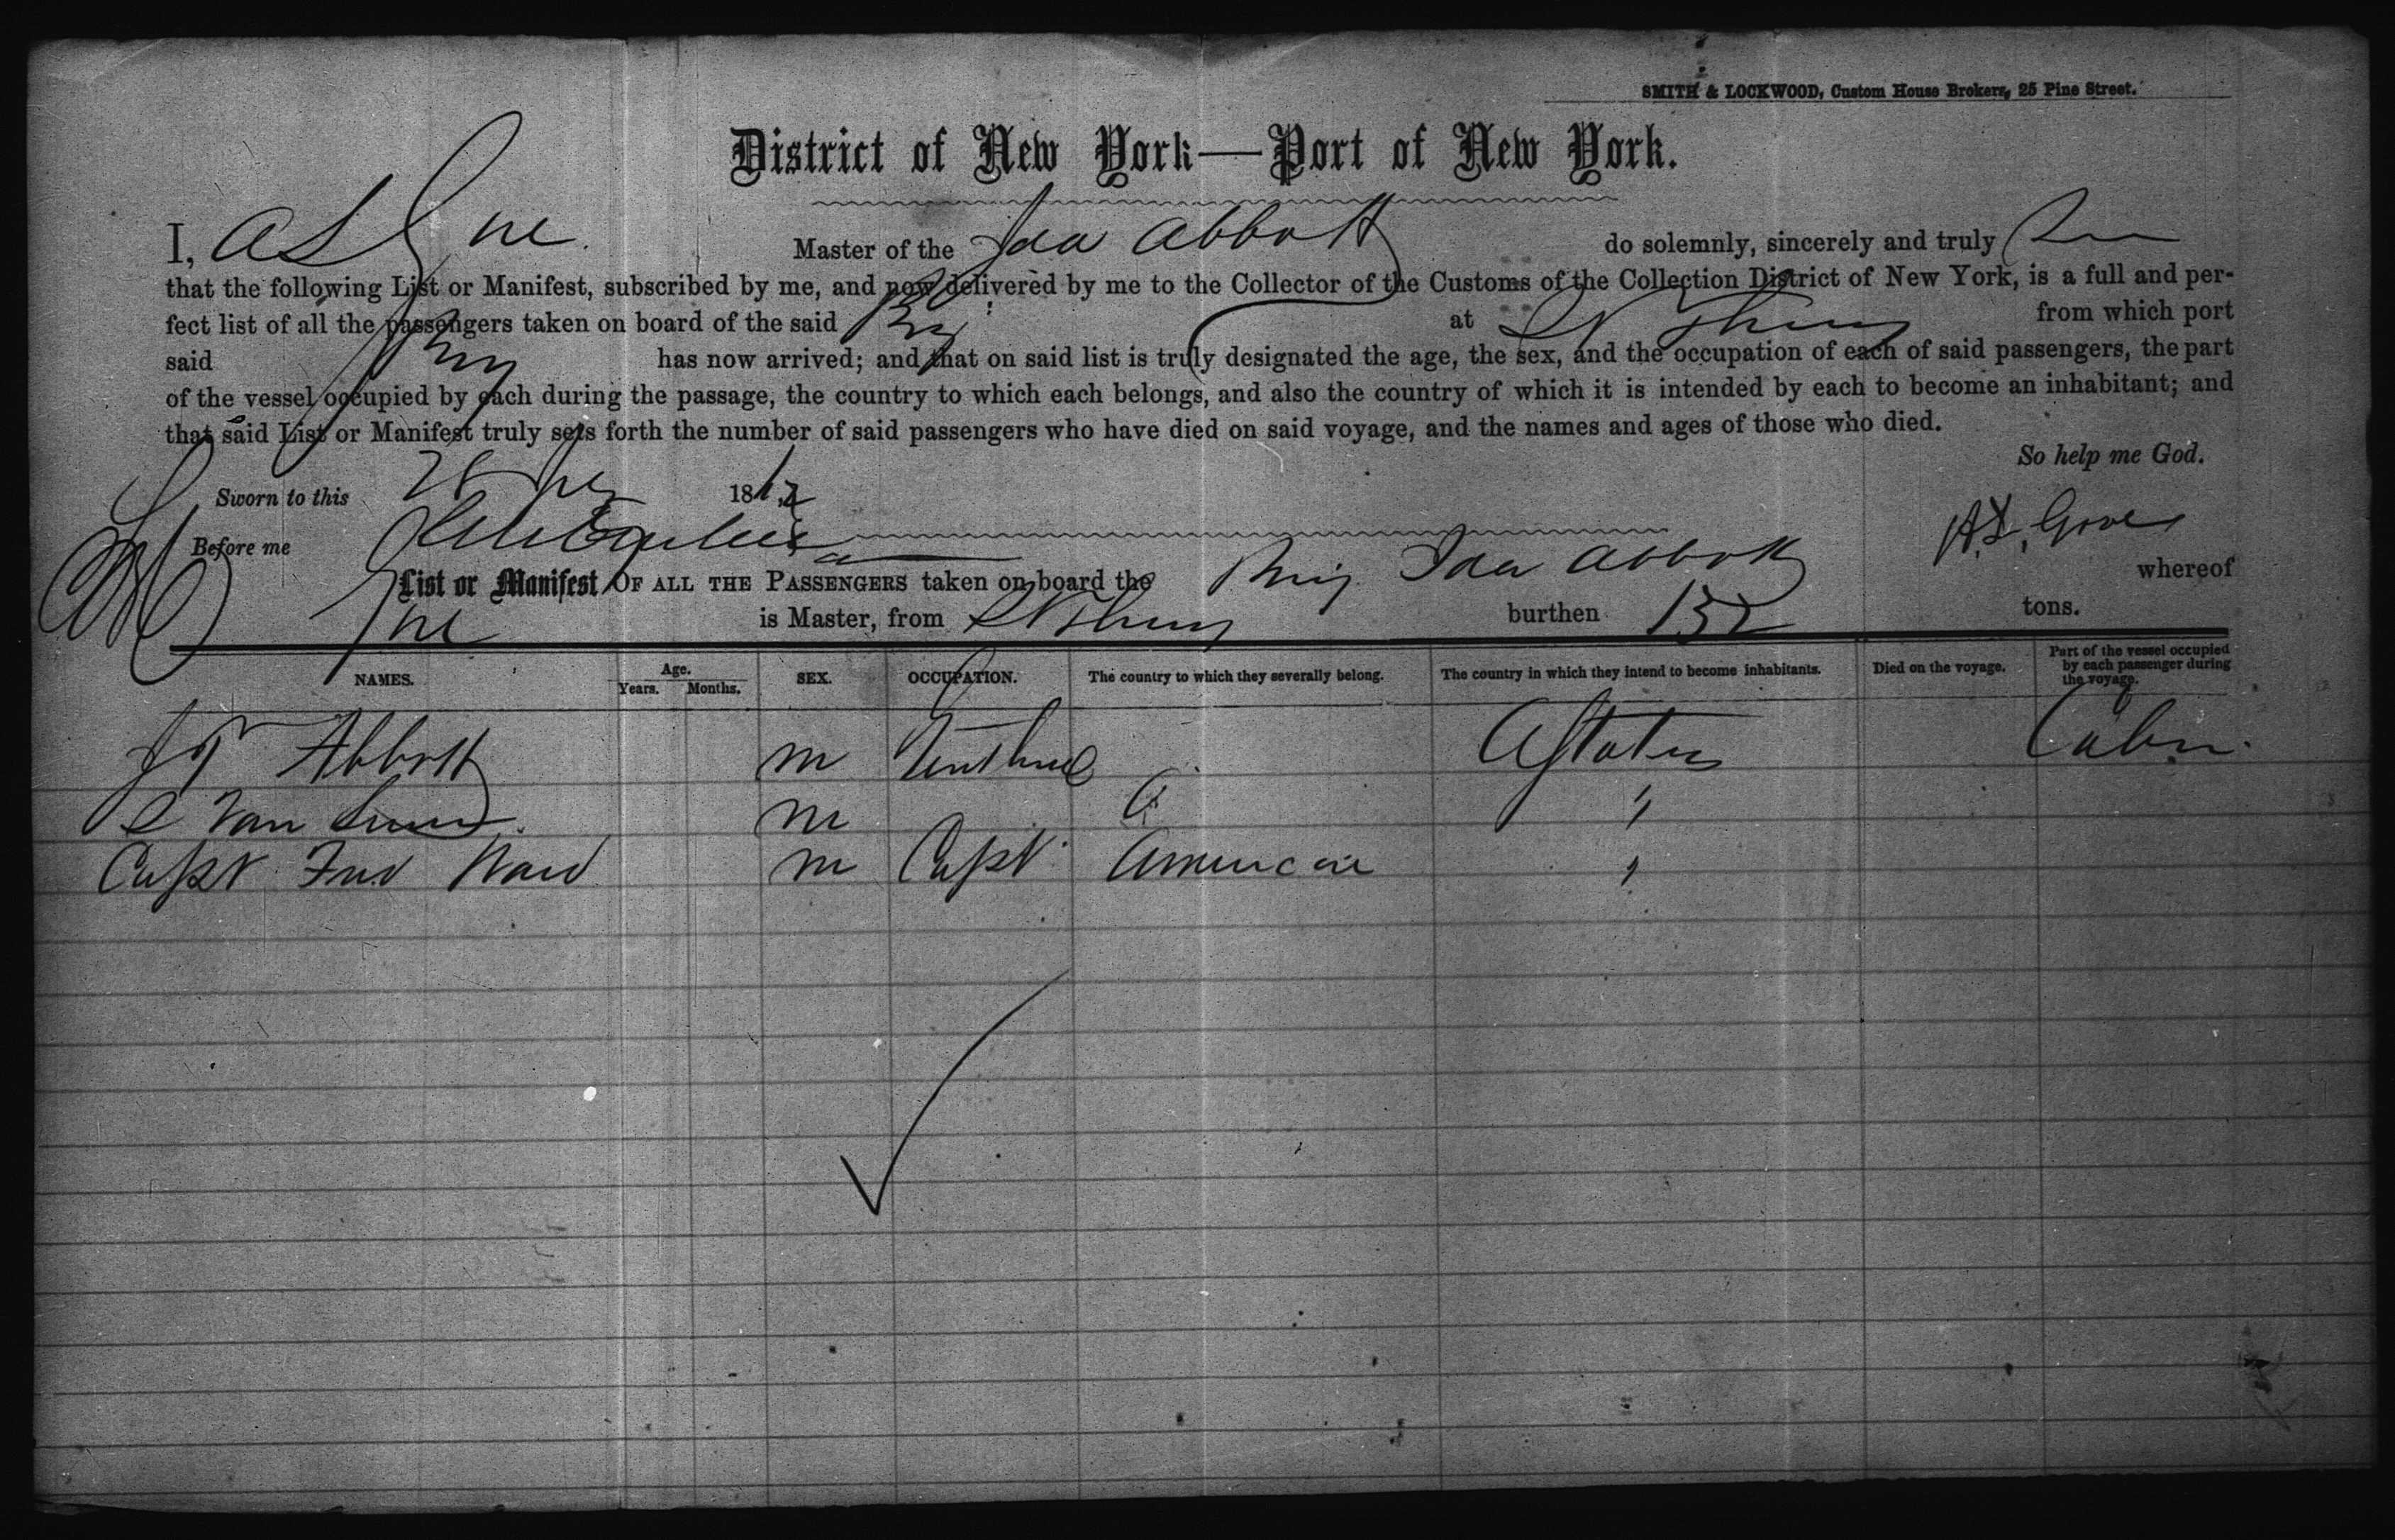 SMITH & LOCKWOOD, Custom House Brokers, 25 Pine Street.
District of New York—Port of New York.
I, A L Master of the Ida Abbott do solemnly, sincerely and truly
that the following List or Manifest, subscribed by me, and now delivered by me to the Collector of the Customs of the Collection District of New York, is a full and per-
fect list of all the passengers taken on board of the said Brig at from which port
said Brig has now arrived; and that on said list is truly designated the age, the sex, and the occupation of each of said passengers, the part
of the vessel occupied by each during the passage, the country to which each belongs, and also the country of which it is intended by each to become an inhabitant; and
that said List or Manifest truly sets forth the number of said passengers who have died on said voyage, and the names and ages of those who died.
So help me God.
Sworn to this 1862
Before me
List or Manifest OF ALL THE PASSENGERS taken on board the Brig Ida Abbott whereof
is Master, from burthen 132 tons.
NAMES. Age. Years. Months. SEX. OCCUPATION. The country to which they severally belong. The country in which they intend to become inhabitants. Died on the voyage. Part of the vessel occupied by each passenger during the voyage.
Abbott m A States Cabin.
Van m "
Capt Ward m Capt American "